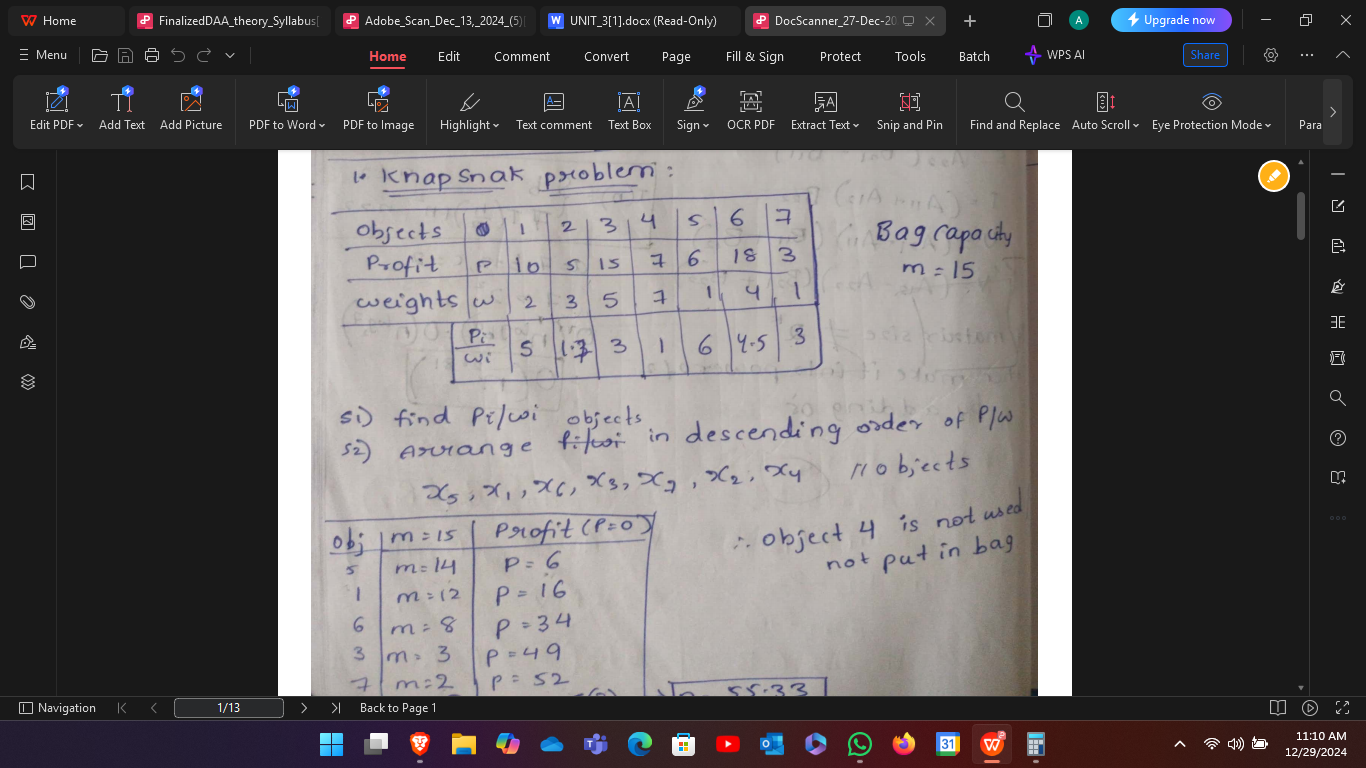 Home
FinalizedDAA_theory_Syllabus[
Adobe_Scan_Dec_13_2024_(5)[
UNIT_3[1].docx (Read-Only)
DocScanner_27-Dec-20
A
Upgrade now
Menu
Home
Edit
Comment
Convert
Page
Fill & Sign
Protect
Tools
Batch
WPS AI
Share
Edit PDF
Add Text
Add Picture
PDF to Word
PDF to Image
Highlight
Text comment
Text Box
Sign
OCR PDF
Extract Text
Snip and Pin
Find and Replace
Auto Scroll
Eye Protection Mode
Para
1. Knapsnak problem:
Objects 1 2 3 4 5 6 7
Profit P 10 5 15 7 6 18 3
weights w 2 3 5 7 1 4 1
Pi/wi 5 1.3 3 1 6 4.5 3
Bag capacity
m = 15
S1) find Pi/wi
S2) Arrange objects in descending order of P/w
x5, x1, x6, x3, x7, x2, x4 // objects
Obj m=15 Profit (P=0)
5 m=14 P=6
1 m=12 P=16
6 m=8 P=34
3 m=3 P=49
7 m=2 P=52
55.33
∴ object 4 is not used
not put in bag
Navigation
1/13
Back to Page 1
11:10 AM
12/29/2024